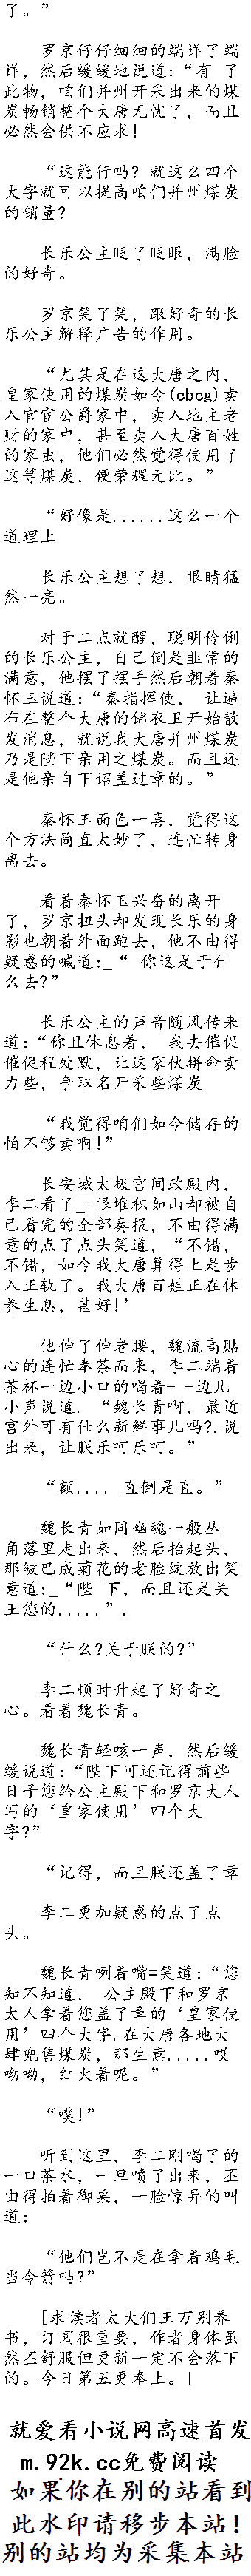 了。”
罗京仔仔细细的端详了端
详，然后缓缓地说道：“有 了
此物，咱们并州开采出来的煤
炭畅销整个大唐无忧了，而且
必然会供不应求！
“这能行吗？就这么四个
大字就可以提高咱们并州煤炭
的销量？
长乐公主眨了眨眼，满脸
的好奇。
罗京笑了笑，跟好奇的长
乐公主解释广告的作用。
“尤其是在这大唐之内，
皇家使用的煤炭如令(cbcg)卖
入官宦公爵家中，卖入地主老
财的家中，甚至卖入大唐百姓
的家虫，他们必然觉得使用了
这等煤炭，便荣耀无比。”
“好像是......这么一个
道理上
长乐公主想了想，眼睛猛
然一亮。
对于二点就醒，聪明伶俐
的长乐公主，自己倒是韭常的
满意，他摆了摆手然后朝着秦
怀玉说道：“秦指挥使， 让遍
布在整个大唐的锦衣卫开始散
发消息，就说我大唐并州煤炭
乃是陛下亲用之煤炭。而且还
是他亲自下诏盖过章的。”
秦怀玉面色一喜，觉得这
个方法简直太妙了，连忙转身
离去。
看着秦怀玉兴奋的离开
了，罗京扭头却发现长乐的身
影也朝着外面跑去，他不由得
疑惑的喊道:_“ 你这是于什
么去?”
长乐公主的声音随风传来
道：“你且休息着， 我去催促
催促程处默，让这家伙拼命卖
力些，争取名开采些煤炭
“我觉得咱们如今储存的
怕不够卖啊!”
长安城太极宫间政殿内，
李二看了_-眼堆积如山却被自
己看完的全部奏报，不由得满
意的点了点头笑道，“不错，
不错，如令我大唐算得上是步
入正轨了。我大唐百姓正在休
养生息，甚好!’
他伸了伸老腰，魏流高贴
心的连忙奉茶而来，李二端着
茶杯一边小口的喝着- -边儿
小声说道．“魏长青啊，最近
宫外可有仕么新鲜事儿吗?.说
出来，让朕乐呵乐呵。”
“额.... 直倒是直。”
魏长青如同幽魂一般丛
角落里走出来，然后抬起头，
那皱巴成菊花的老脸绽放出笑
意道:_“陛 下，而且还是关
王您的.....”.
“什么?关于朕的?”
李二顿时升起了好奇之
心。看着魏长青。
魏长青轻咳一声，然后缓
缓说道：“陛下可还记得前些
日子您给公主殿下和罗京大人
写的‘皇家使用’四个大
字?”
“记得，而且朕还盖了章
李二更加疑惑的点了点
头。
魏长青咧着嘴=笑道：“您
知不知道， 公主殿下和罗京
太人拿着您盖了章的‘皇家使
用’四个大字.在大唐各地大
肆兜售煤炭，那生意.....哎
呦呦，红火着呢。”
“噗!”
听到这里，李二刚喝了的
一口茶水，一旦喷了出来，丕
由得拍着御桌，一脸惊异的叫
道：
“他们岂不是在拿着鸡毛
当令箭吗?”
[求读者太大们王万别养
书，订阅很重要，作者身体虽
然丕舒服但更新一定不会落下
的。今日第五更奉上。|
就爱看小说网高速首发
m.92k.cc免费阅读
如果你在别的站看到
此水印请移步本站！
别的站均为采集本站